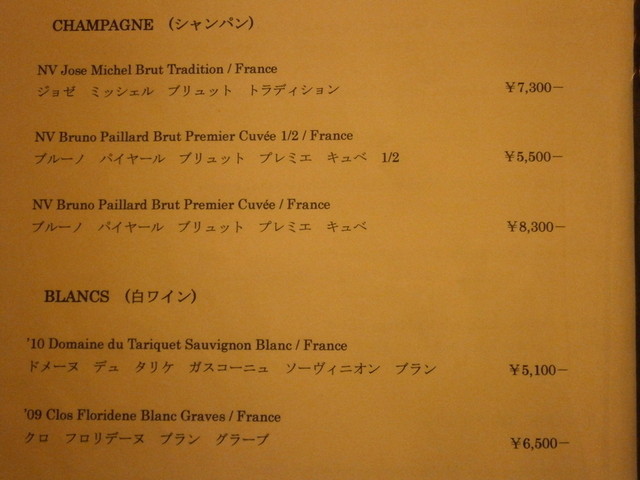 CHAMPAGNE （シャンパン）
NV Jose Michel Brut Tradition / France
ジョゼ ミッシェル ブリュット トラディション ￥7,300－
NV Bruno Paillard Brut Premier Cuvée 1/2 / France
ブルーノ パイヤール ブリュット プレミエ キュベ 1/2 ￥5,500－
NV Bruno Paillard Brut Premier Cuvée / France
ブルーノ パイヤール ブリュット プレミエ キュベ ￥8,300－
BLANCS （白ワイン）
'10 Domaine du Tariquet Sauvignon Blanc / France
ドメーヌ デュ タリケ ガスコーニュ ソーヴィニオン ブラン ￥5,100－
'09 Clos Floridene Blanc Graves / France
クロ フロリデーヌ ブラン グラーブ ￥6,500－